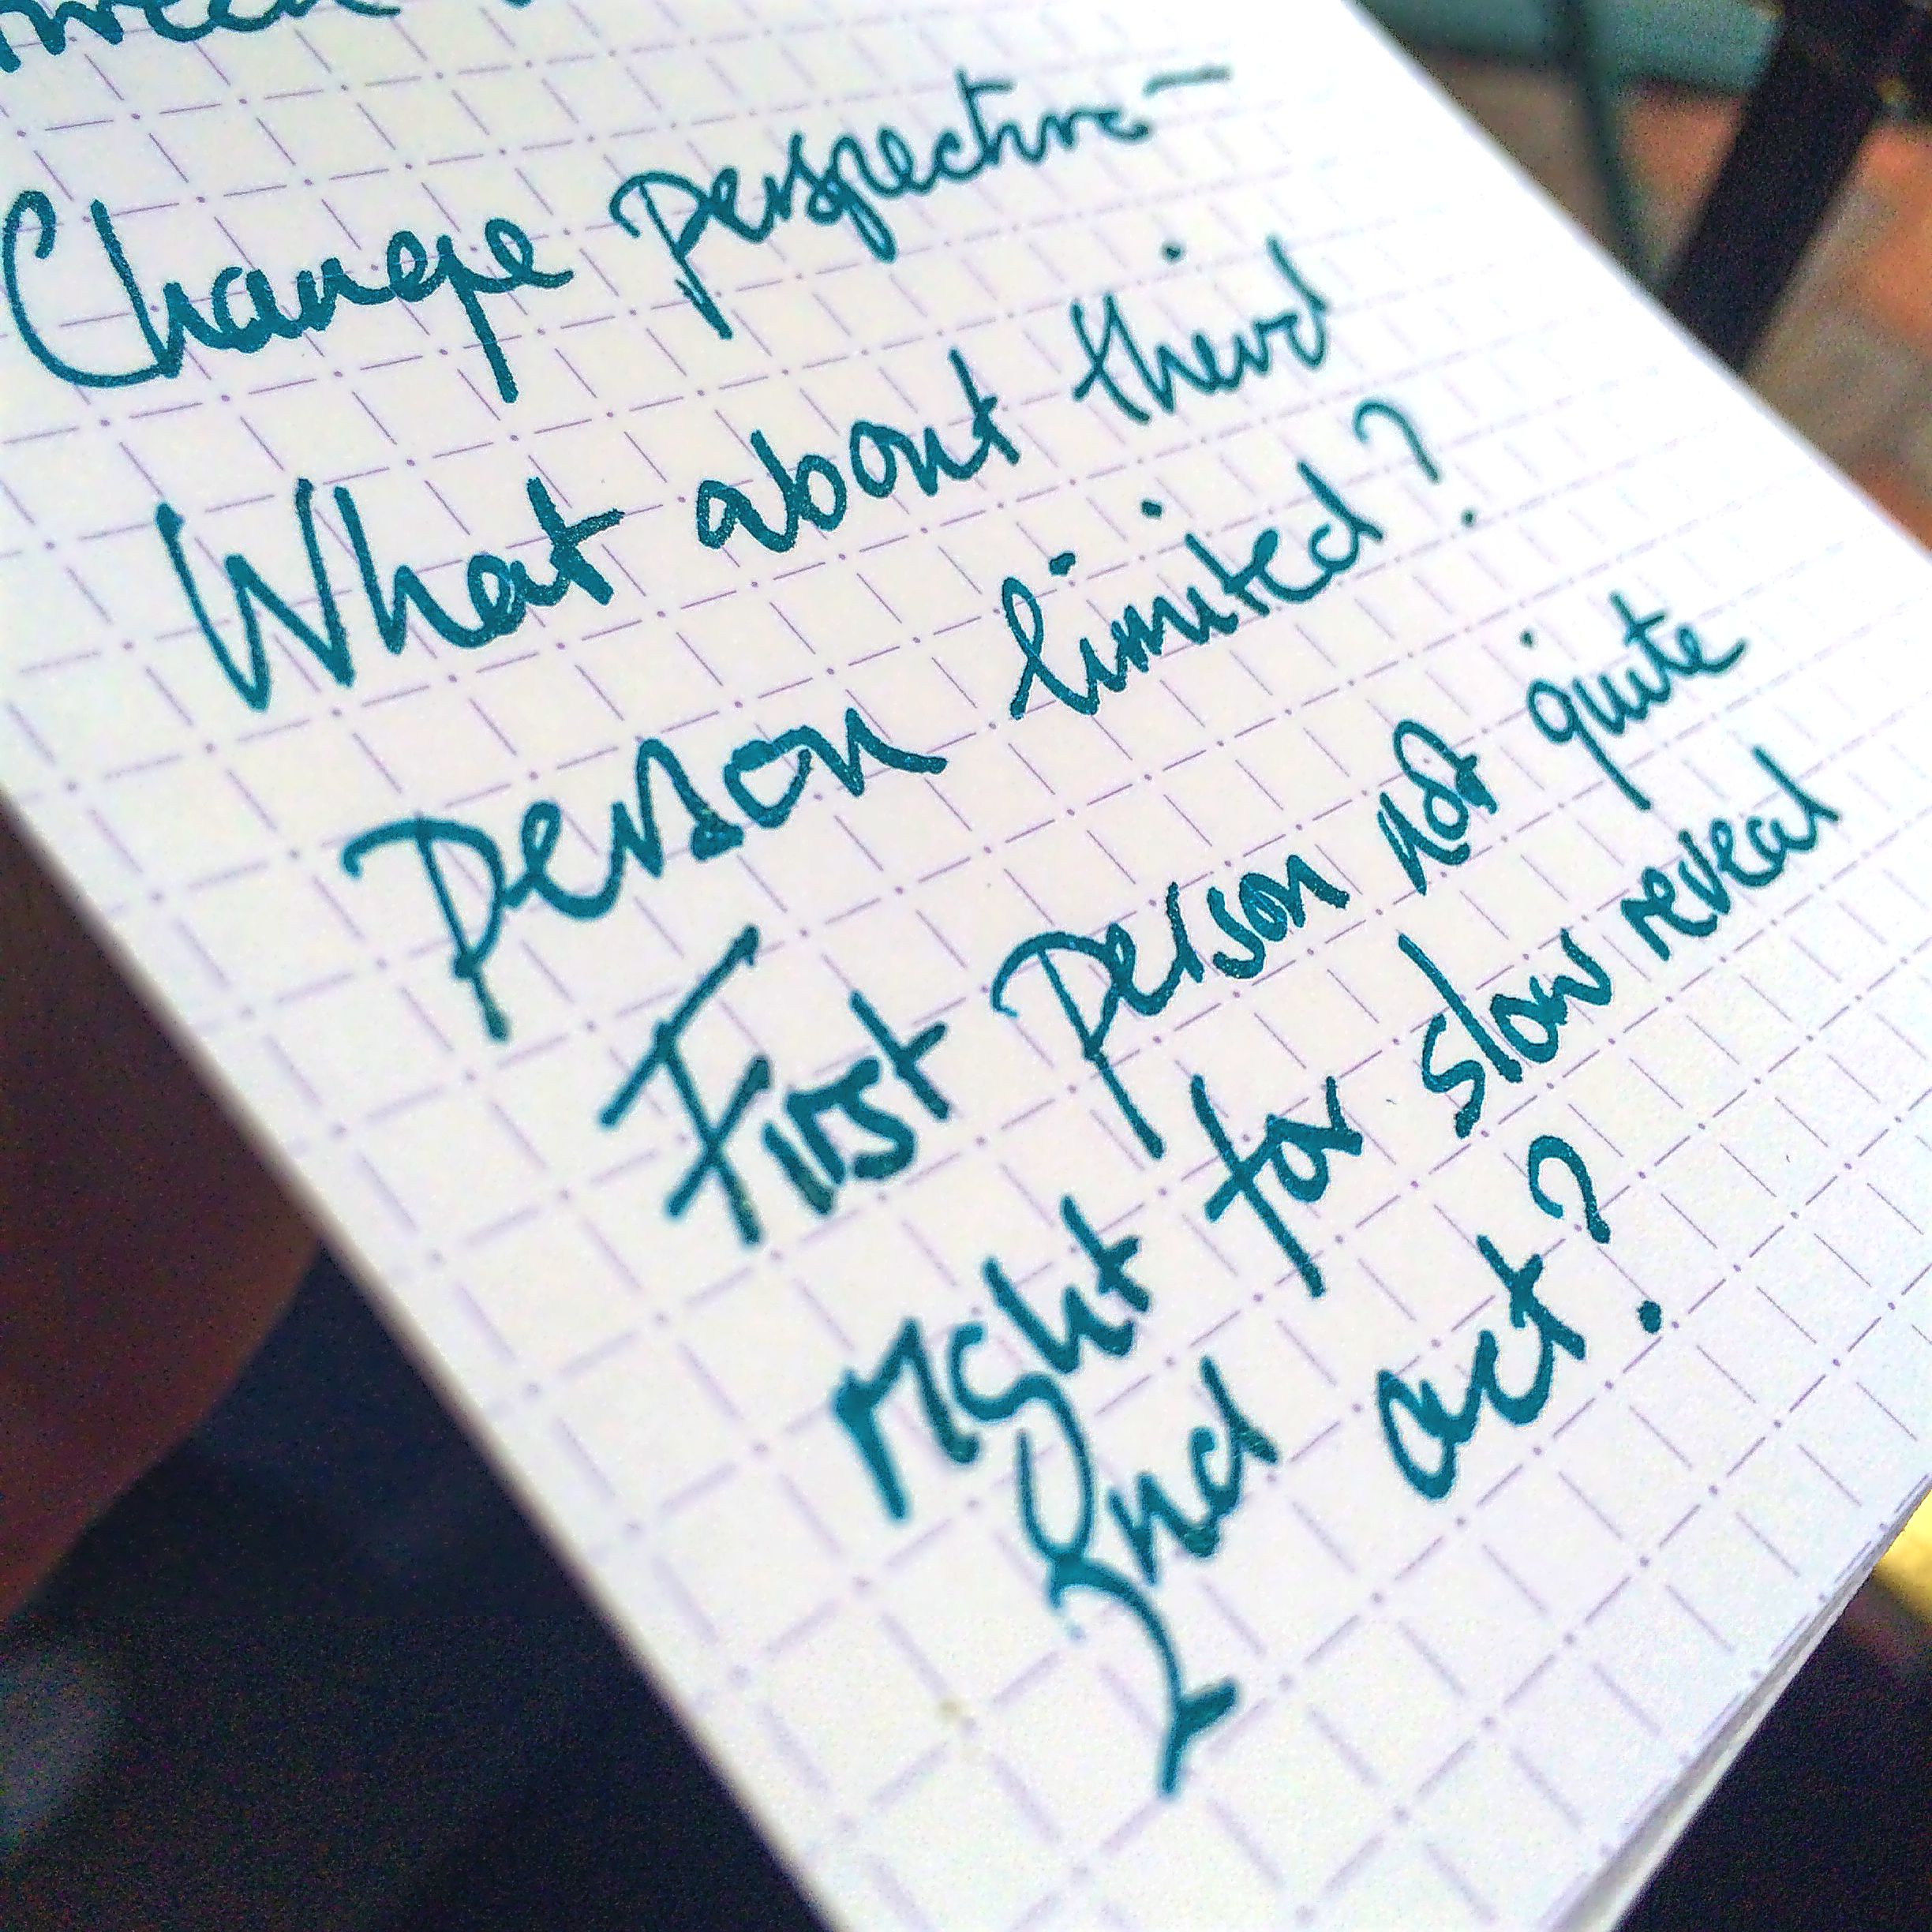 Change perspective –
What about third
person limited?
First person not quite
right for slow reveal
2nd act?